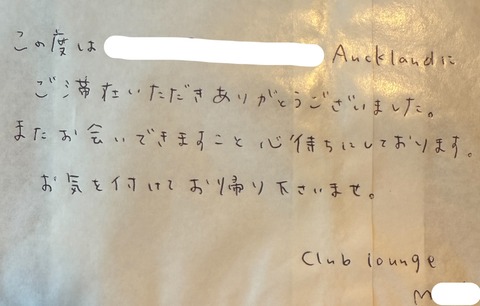 この度は Aucklandに
ご滞在いただきありがとうございました。
またお会いできますこと心待ちにしております。
お気を付けてお帰り下さいませ。
Club lounge
M